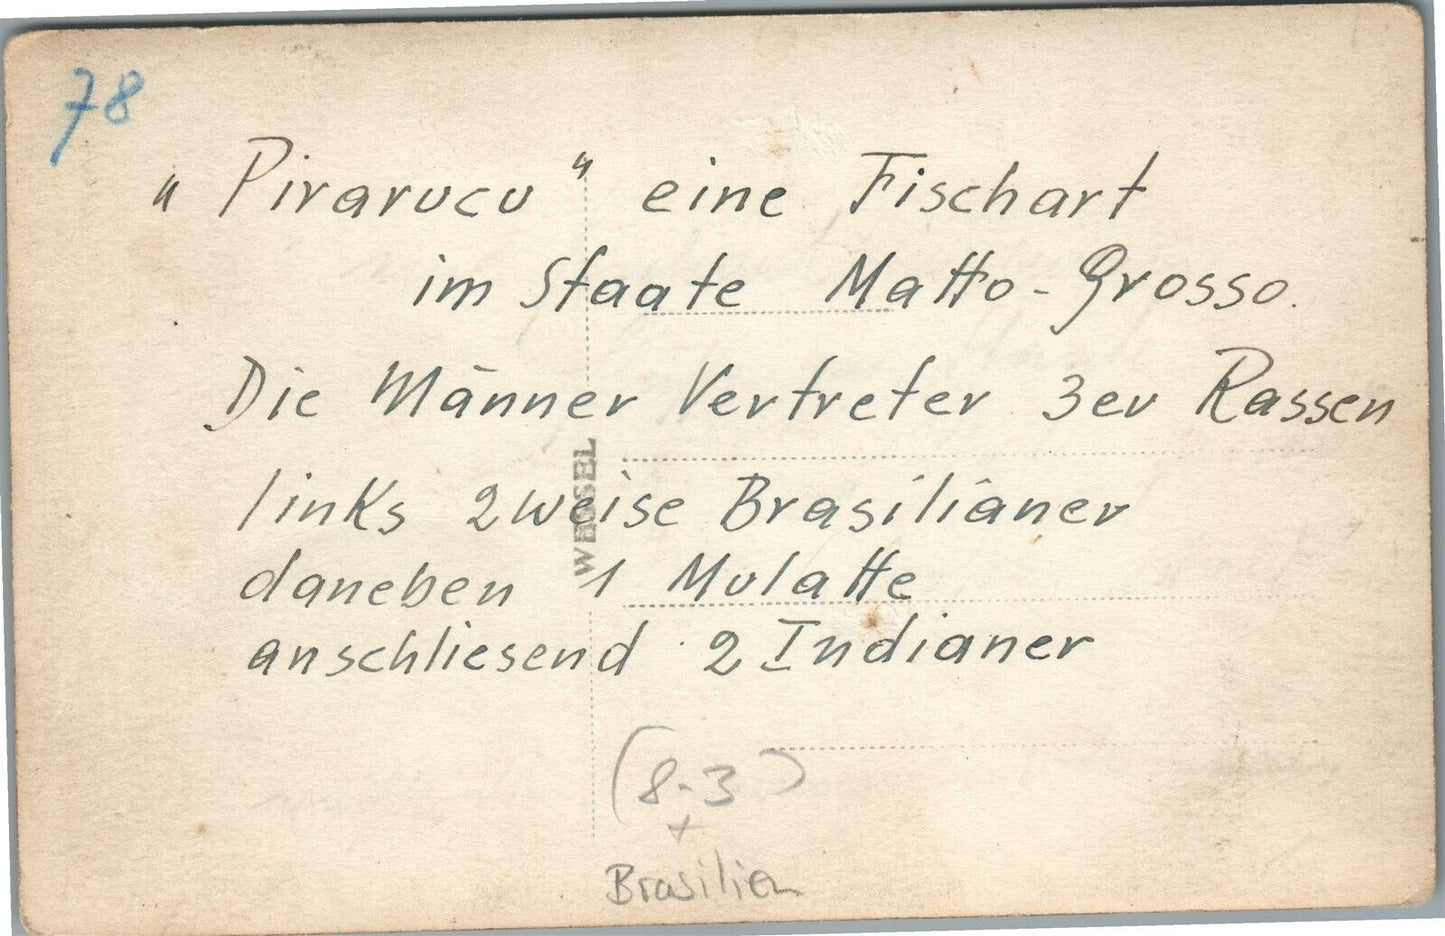 78
"Pirarucu" eine Fischart
im Staate Matto-Grosso.
Die Männer Vertreter 3er Rassen
links 2 weise Brasilianer
daneben 1 Mulatte
anschliesend 2 Indianer
WESSEL
(8-3)
+
Brasilien